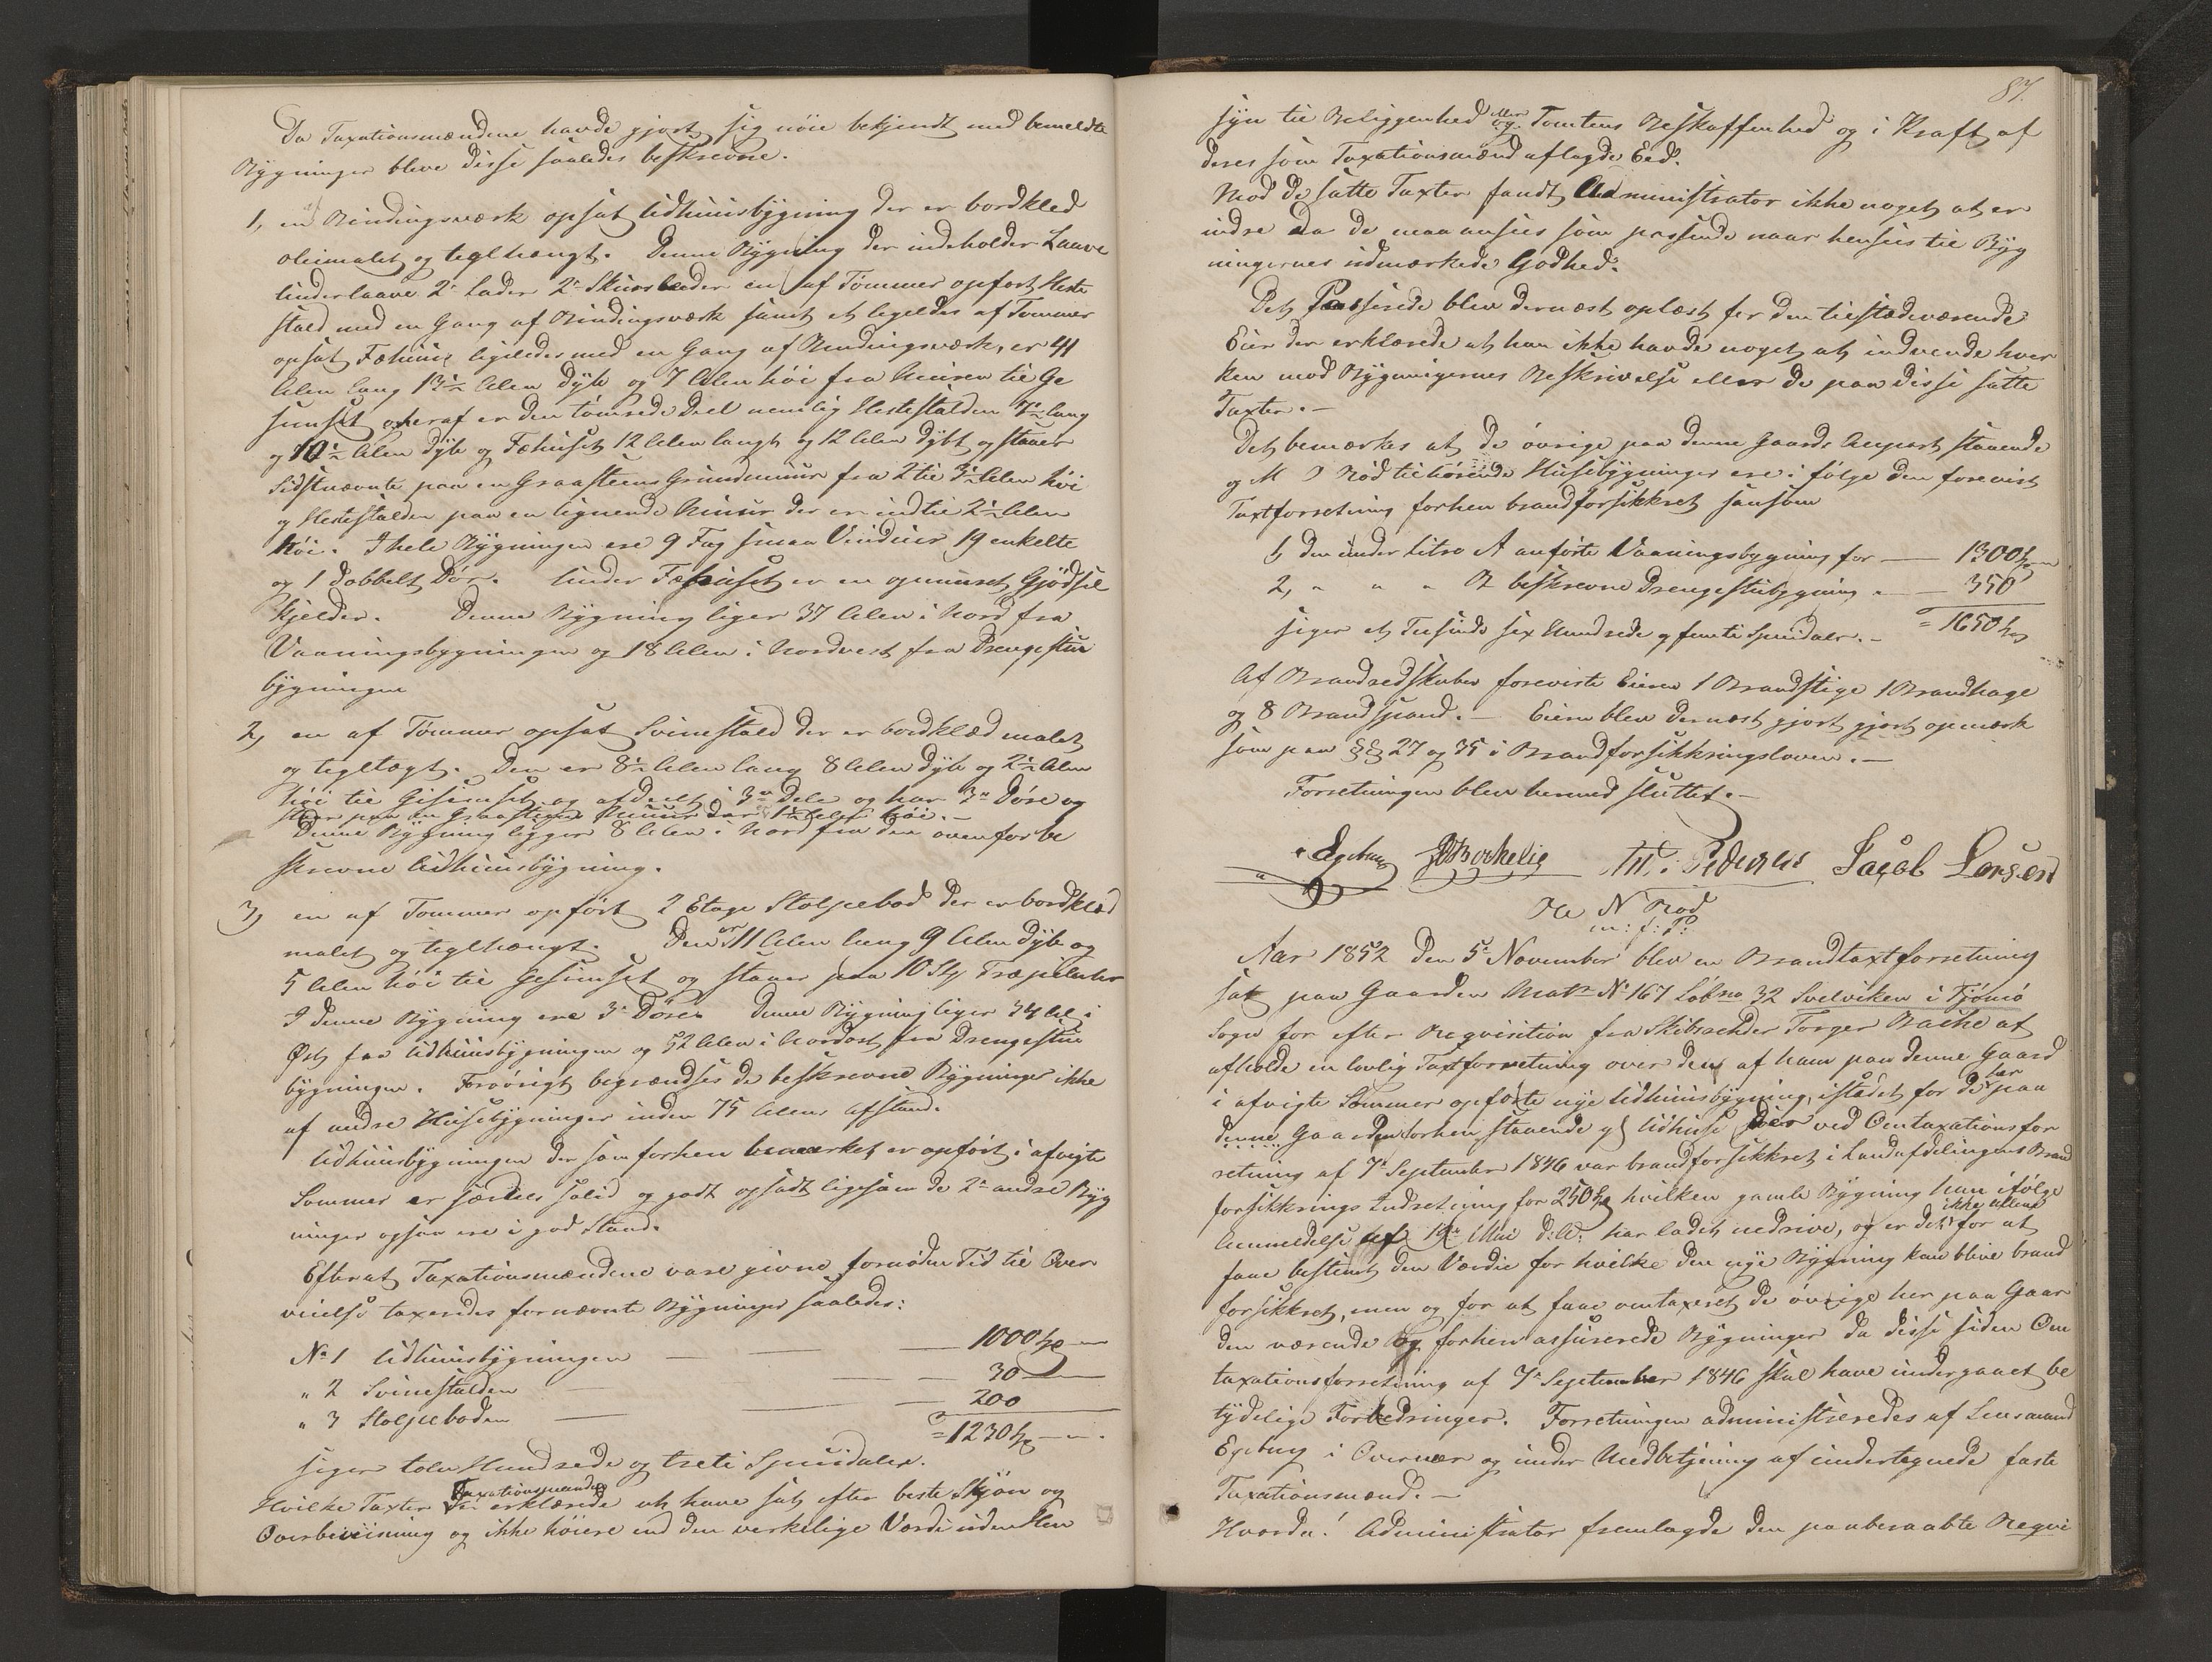 Da Taxationsmændene havde gjort sig nöie bekjendt med bemeldte
Bygninger bleve disse saaledes beskrevne.
1, en Bindingsværk opsat Udhuusbygning der er bordkled
oliemalet og teglhængt. Denne Bygning der indeholder Laave
Underlaave 2de Lader 2de Skuurlader en af Tömmer opfört Heste
stald med en Gang af Bindingsværk samt et ligeledes af Tömmer
opsat Fæhuus ligeledes med en Gang af Bindingsværk, er 41
Alen lang 13½ Alen dyb og 7 Alen höi fra Muren til Ge
simset, heraf er den tömrede Deel nemlig Hestestalden 7½ lang
og 10½ Alen dyb og Fæhuset 12 Alen langt og 12 Alen dybt og staaer
Sidstnævnte paa en Graasteens Grundmuur fra 2 til 3½ Alen höi
og Hestestalden paa en lignende Muur der er indtil 2½ Alen
höi. I hele Bygningen ere 9 Fag smaa Vinduer 19 enkelte
og 1 dobbelt Dör. Under Fæhuset er en opmuret Gjödsel
kjelder. Denne Bygning liger 37 Alen i Nord fra
Vaaningsbygningen og 18 Alen i Nordvest fra Drengestue
bygningen
2, en af Tömmer opsat Svinestald der er bordklæd malet
og tegltægt. Den er 8½ Alen lang 8 Alen dyb og 2½ Alen
höi til Gesimset og afdeelt i 3de Dele og har 3de Döre og
staar paa en Graasteens Muur der 1½ Alen höi.-
Denne Bygning ligger 8 Alen i Nord fra den ovenfor be
skrevne Udhuusbygning.
3, en af Tömmer opfört 2 Etage Stolpebod der er bordklæd
malet og teglhængt. Den er 11 Alen lang 9 Alen dyb og
5 Alen höi til Gesimset og staaer paa 10 Stk Træpilarer
I denne Bygning ere 3de Döre. Denne Bygning liger 34 Al i
Öst fra Udhuusbygningen og 52 Alen i Nordost fra Drengestue
bygningen. Forövrigt begrændses de beskrevne Bygninger ikke
af andre Huusebygninger inden 75 Alens Afstand.
Udhuusbygningen der som forhen bemærket er opfört i afvigte
Sommer er særdeles solid og godt opsadt ligesom de 2de andre Byg
ninger ogsaa ere i god Stand.
Efter at Taxationsmændene vare givne fornöden Tid til Over
veielse taxeredes fornævnte Bygninger saaledes:
No 1 Udhuusbygningen — — — 1000 Spd —
" 2 Svinestalden — — 30 —
" 3 Stolpeboden — — 200
= 1230 Spd — .
siger tolv Hundrede og treti Speciedaler.
Hvilke Taxter Taxationsmændene erklærede at have sat efter beste Skjön og
Overbeviisning og ikke höiere end den verkelige Værdi uden Hen
87.
syn til Beliggenhed eller Tomtens Beskaffenhed og i Kraft af
deres som Taxationsmænd aflagde Eed.
Mod de satte Taxter fandt Administrator ikke noget at er
indre da de maa ansees som passende naar hensees til Byg
ningernes udmærkede Godhed.
Det Passerede blev dernæst oplæst for den tilstædeværende
Eier der erklærede at han ikke havde noget at indvende hver
ken mod Bygningernes Beskrivelse eller de paa disse satte
Taxter.-
Det bemærkes at de övrige paa denne Gaards Anpart staaende
og N Röd tilhörende Huusebygninger ere i fölge den foreviist
Taxtforretning forhen brandforsikkret saasom
1, den under Litra A anförte Vaaningsbygning for — 1300 Spd
2, " " " B beskrevne Drengestubygning " — 350
siger et Tusinde sex Hundrede og femti Speciedaler.- = 1650 Spd
Af Brandredskaber foreviste Eieren 1 Brandstige 1 Brandhage
og 8 Brandspand.- Eieren blev dernæst gjort gjort opmærk
som paa §§ 27 og 35 i Brandforsikkringsloven.-
Forretningen blev hermed sluttet.-
Egeberg Bockelie M. Pedersen Jacob Larsen
N Röd
m: f: P:
Aar 1852 den 5te November blev en Brandtaxtforretning
sat paa Gaarden Matr No 167 Löbno 32 Svelviken i Tjömö
Sogn for efter Reqvisition fra Skibsrehder Torger Bache at
afholde en lovlig Taxtforretning over den af ham paa denne Gaard
i afvigte Sommer opförte nye Udhuusbygning, istædet for det her paa
denne Gaarden forhen staaende gl Udhuus der ved Omtaxationsfor
retning af 7de September 1846 var brandforsikkret i Landafdelingens Brand
forsikkrings Indretning for 250 Spd hvilken gamle Bygning han ifölge
Anmeldelse af 19de Mai d:A: har ladet nedrive, og er det ikke allene for at
faae bestemt den Værdie for hvilke den nye Bygning kan blive brand
forsikkret, men og for at faae omtaxeret de övrige her paa Gaar
den værende og forhen assurerede Bygninger da disse siden Om
taxationsforretning af 7de September 1846 skal have undergaaet be
tydelige Forbedringer. Forretningen administreredes af Lensmand
Egeberg i Overvær og under Medbetjening af undertegnede faste
Taxationsmænd.-
Hvorda! Administrator fremlagde den paaberaabte Reqvi